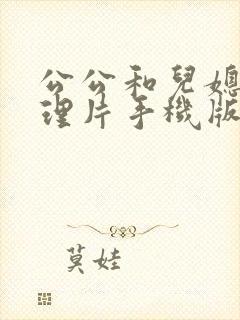 公公和兒媳
理片手機版
莫娃